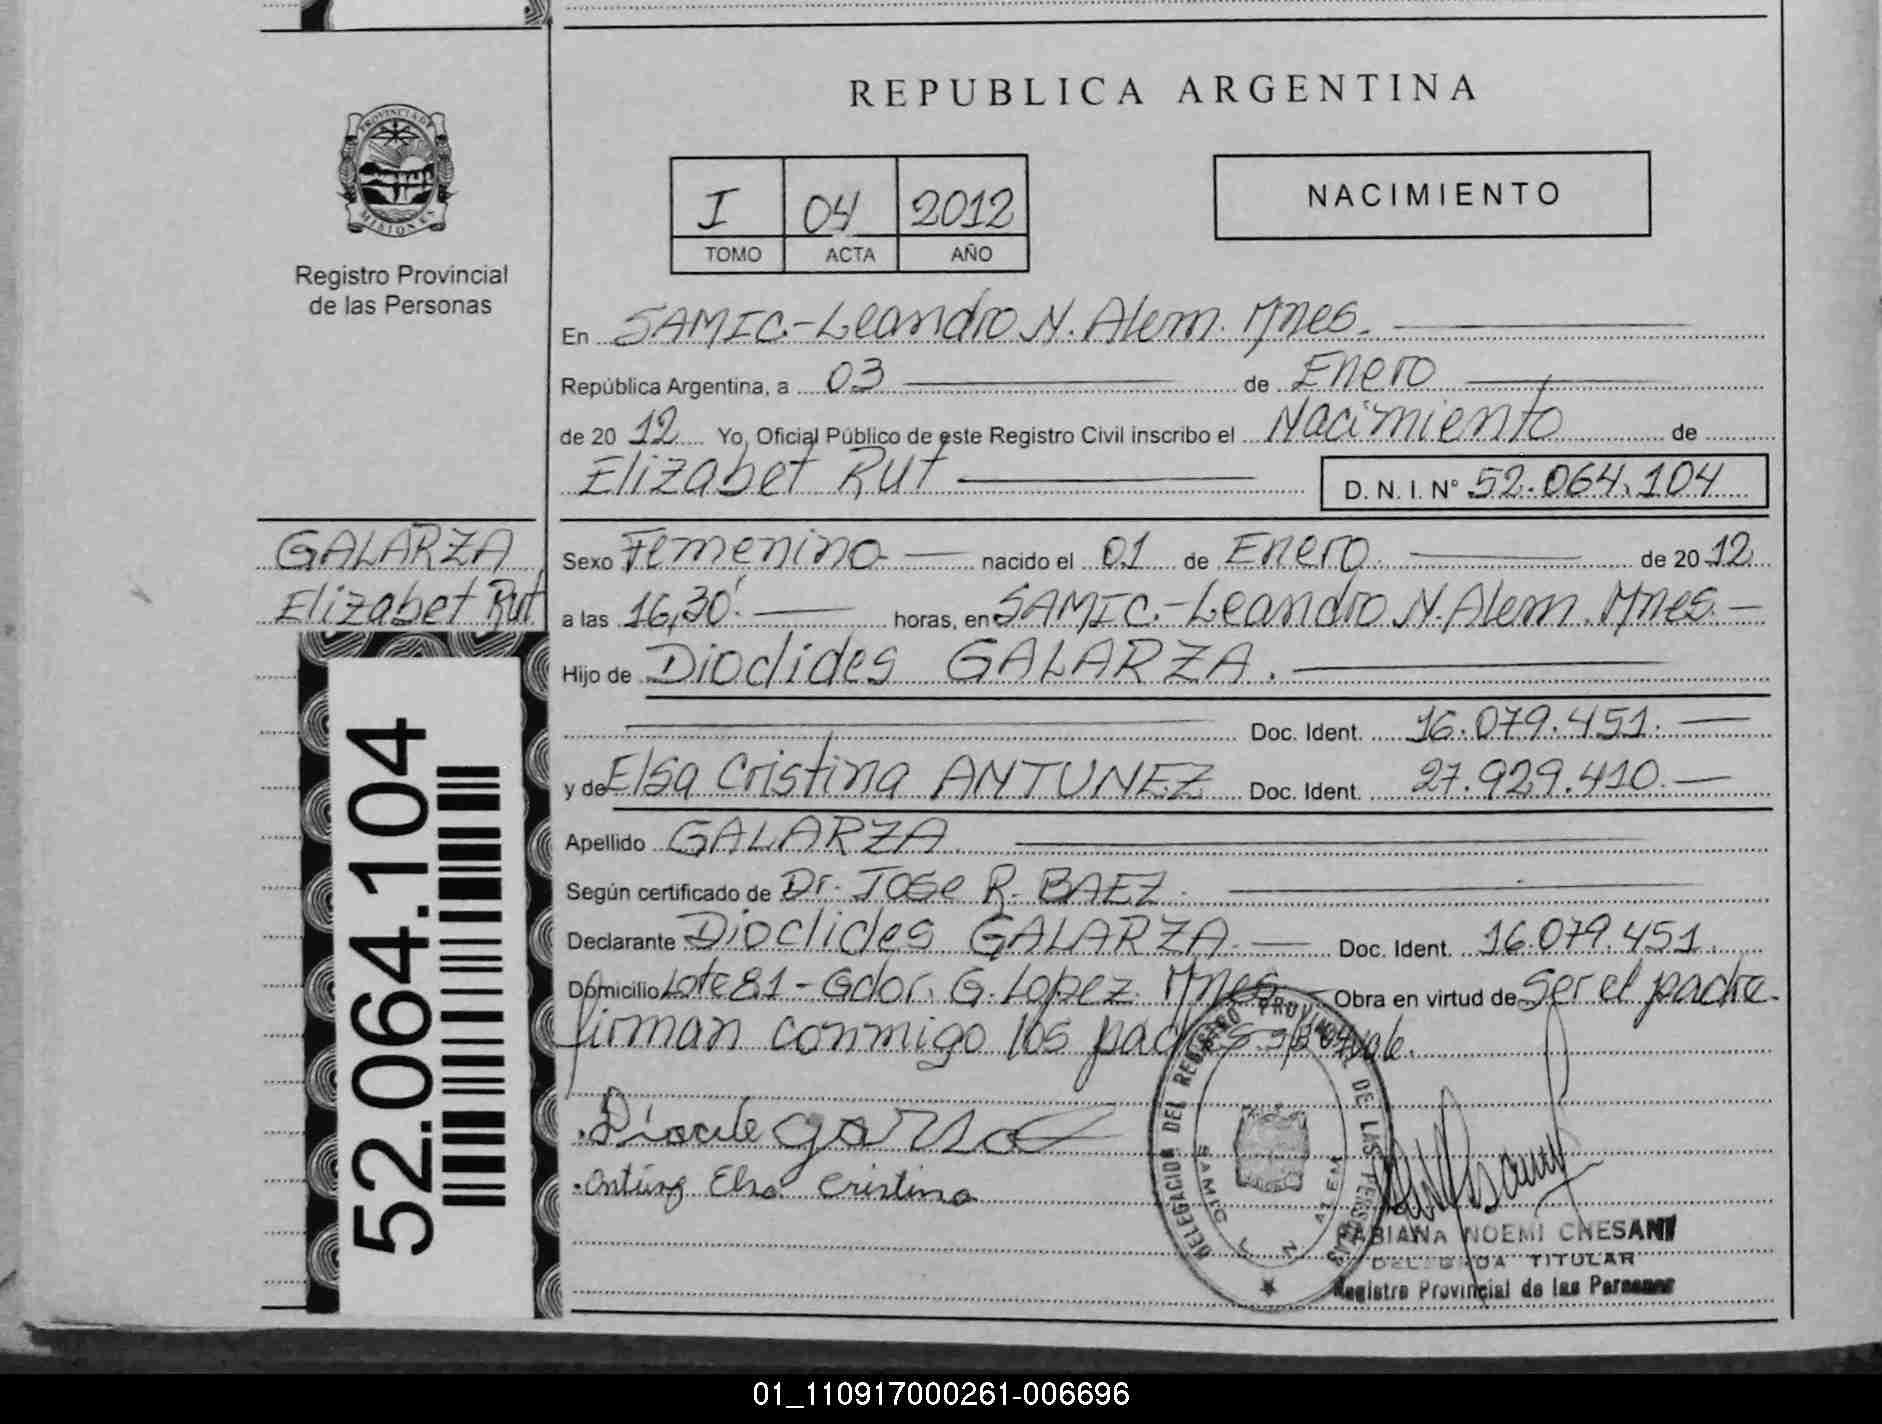 REPUBLICA ARGENTINA
PROVINCIA DE
MISIONES
Registro Provincial
de las Personas
I 04 2012
TOMO ACTA AÑO
NACIMIENTO
En SAMIC.-Leandro N. Alem. Mnes.
República Argentina, a 03 de Enero
de 20 12 Yo, Oficial Público de este Registro Civil inscribo el Nacimiento de
Elizabet Rut D. N. I. N° 52.064.104
GALARZA
Elizabet Rut
52.064.104
Sexo Femenino nacido el 01 de Enero de 20 12
a las 16,30' horas, en SAMIC.-Leandro N. Alem. Mnes.
Hijo de Dioclides GALARZA.
Doc. Ident. 16.079.451.
y de Elsa Cristina ANTUNEZ Doc. Ident. 27.929.410.
Apellido GALARZA
Según certificado de Dr. Jose R. BAEZ.
Declarante Dioclides GALARZA. Doc. Ident. 16.079.451.
Domicilio Lote 81 - Gdor. G. Lopez. Mnes Obra en virtud de Ser el padre.
firman conmigo los padres vale.
Elsa Cristina
DELEGACION DEL REGISTRO PROVINCIAL DE LAS PERSONAS
SAMIC L N ALEM
FABIANA NOEMI CHESANI
DELEGADA TITULAR
Registro Provincial de las Personas
01_110917000261-006696